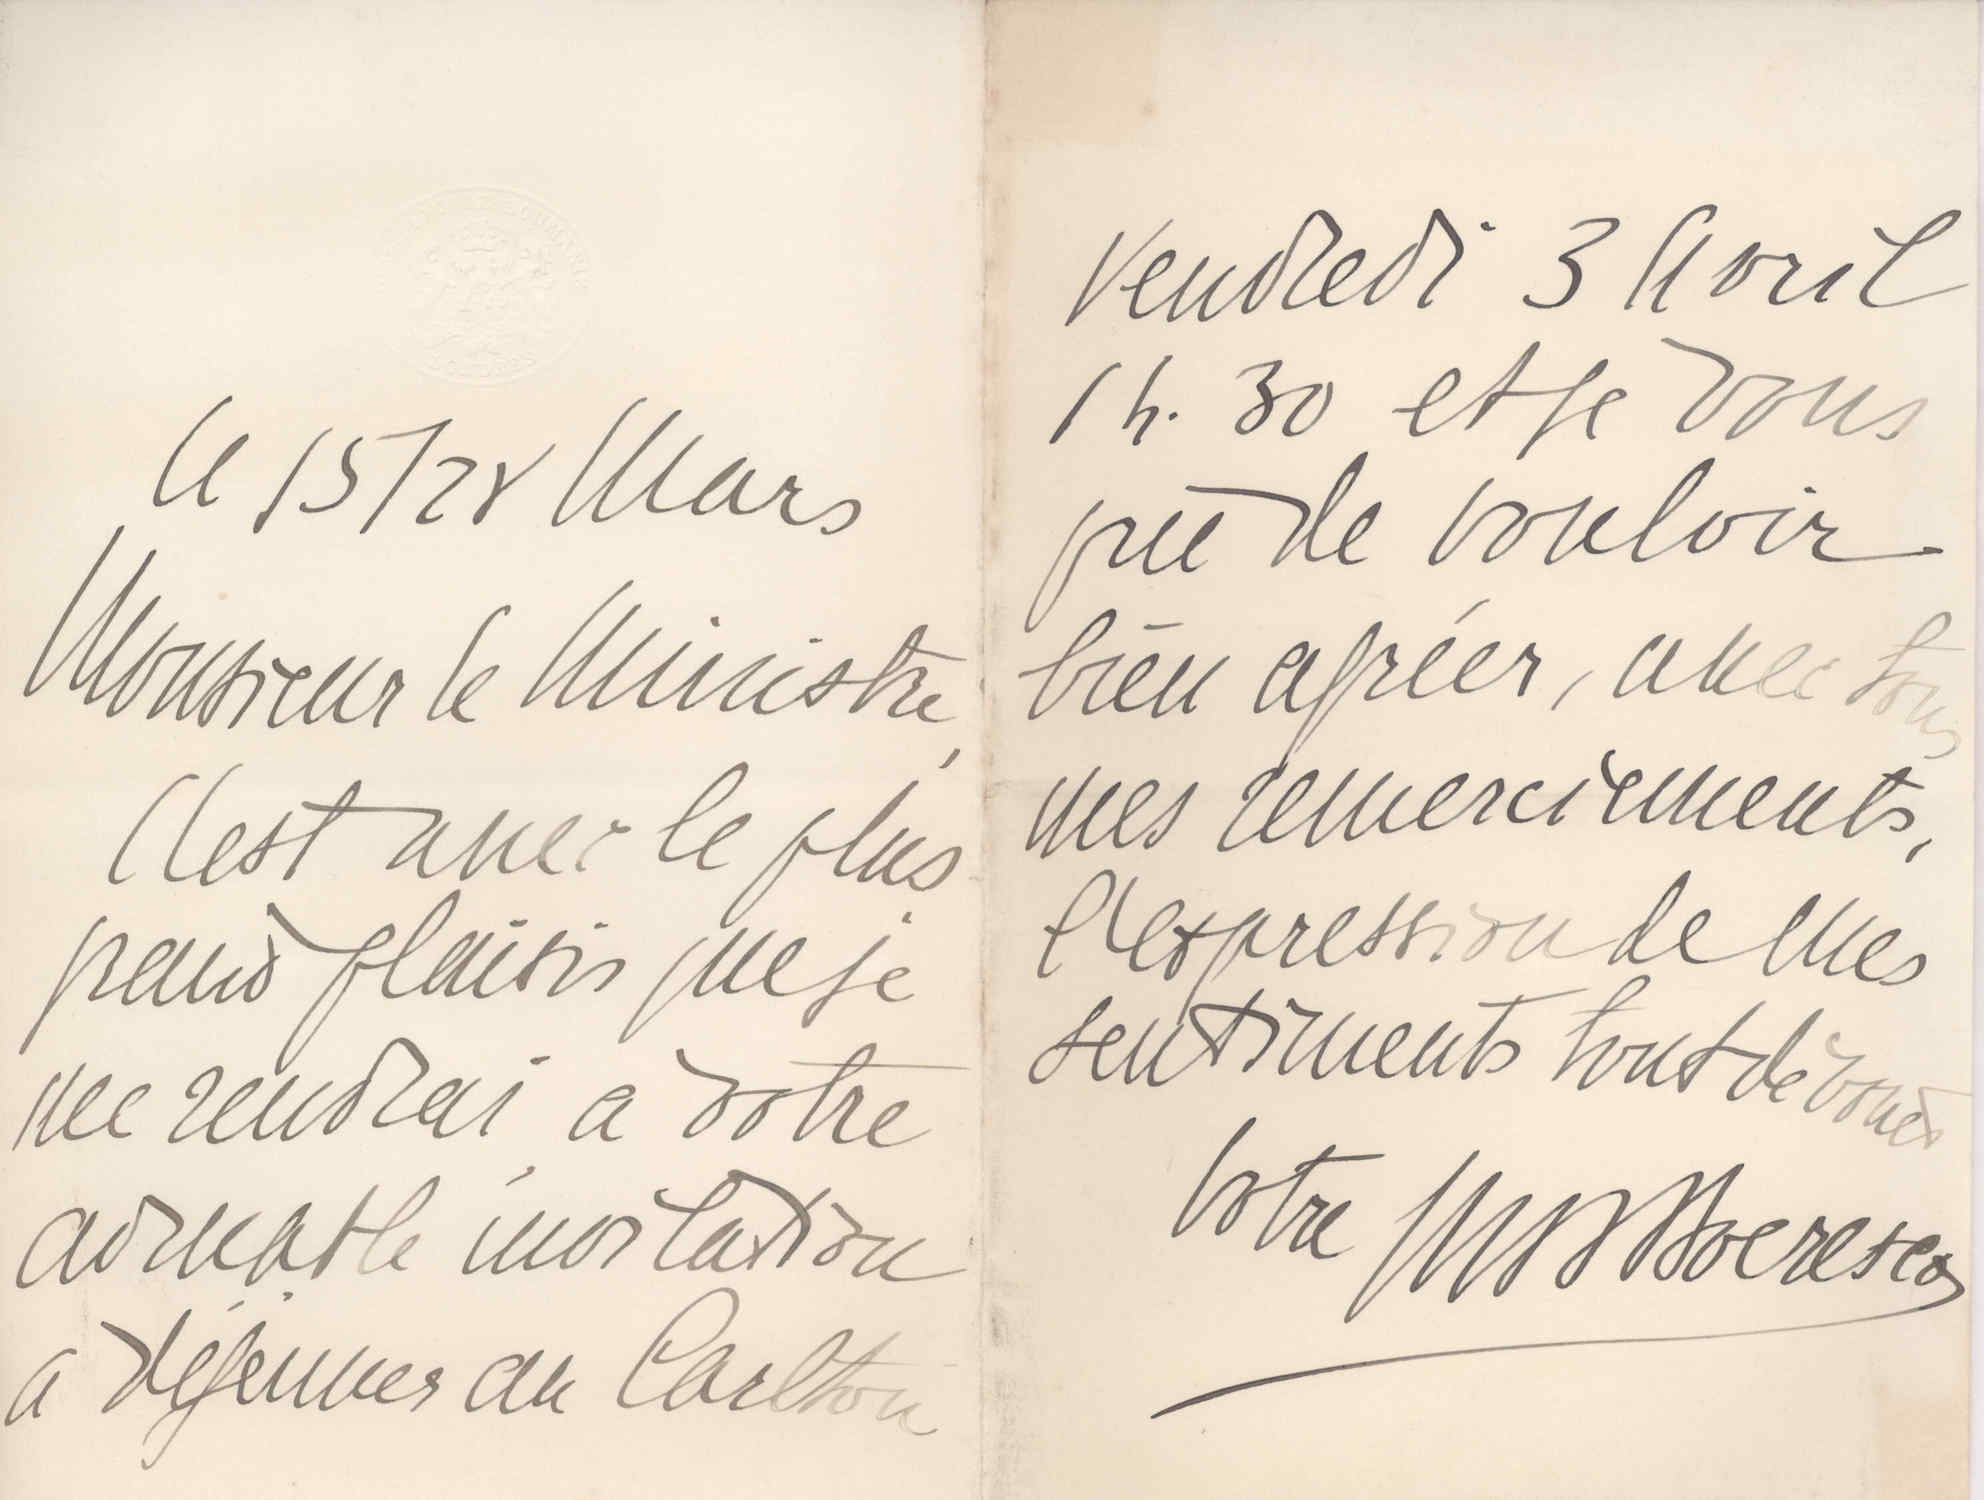 Le 15/28 Mars
Monsieur le Ministre,
C'est avec le plus
grand plaisir que je
me rendrai a votre
aimable invitation
a déjeuner au Carlton
Vendredi 3 Avril
1 h. 30 et je vous
prie de vouloir
bien agréer, avec tous
mes remerciements,
l'expression de mes
sentiments tout dévoués
Votre M B Boeresco